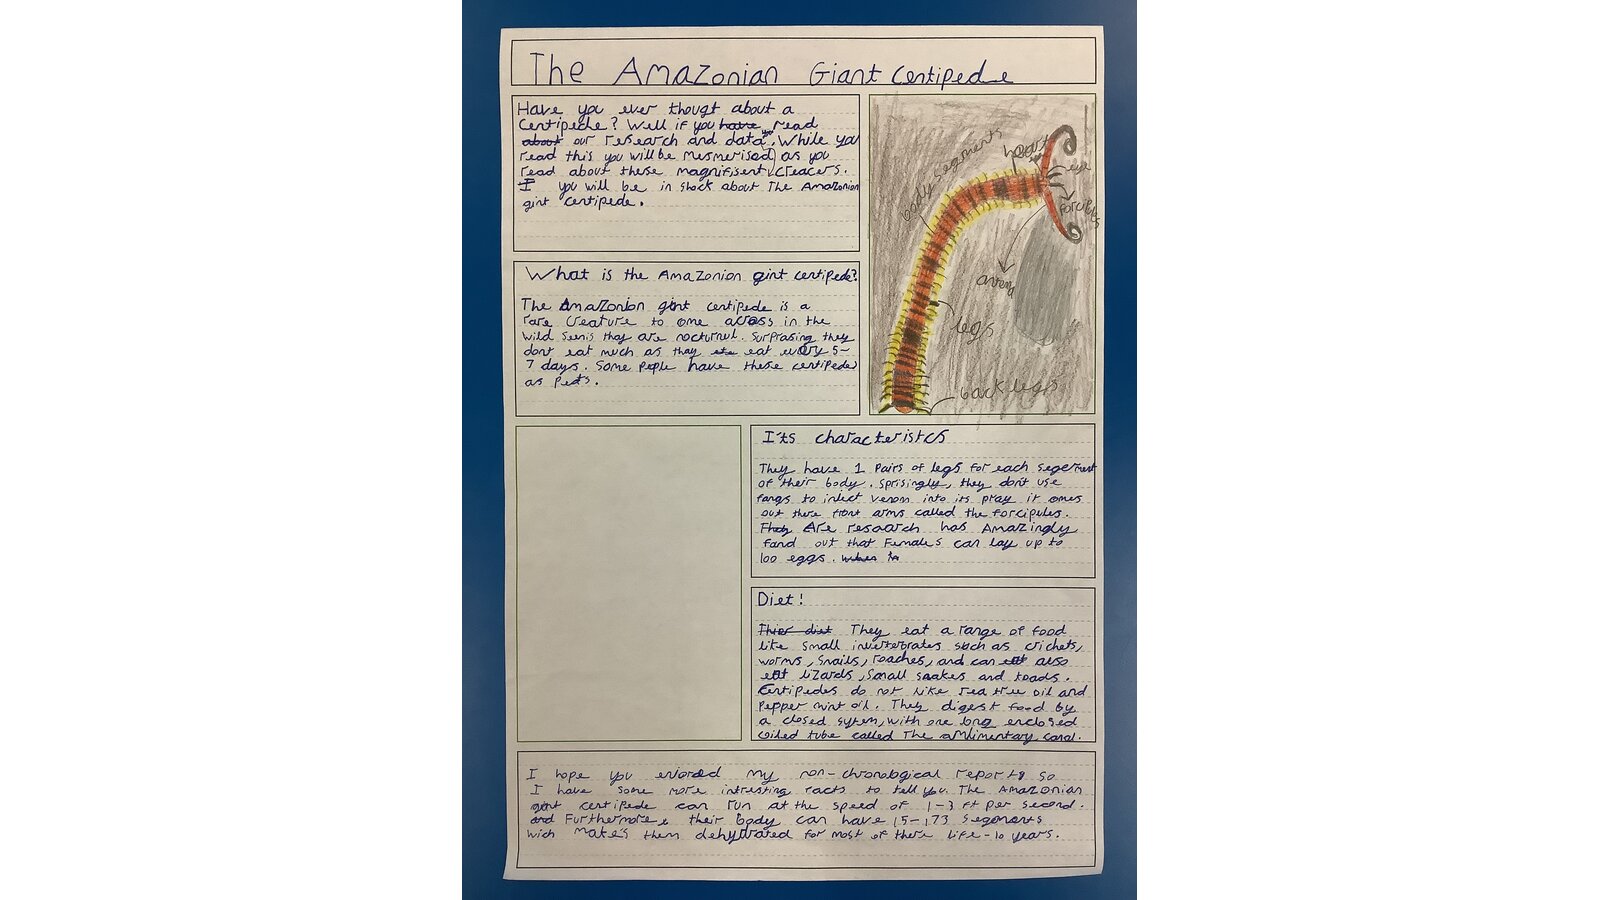 The Amazonian Giant Centipede
Have you ever thougt about a
Centipede? Well if you have read
about our research and data, While you
read this you will be mesmerised as you
read about these magnifisent creacers.
I you will be in shock about The Amazonian
gint centipede.
body segments
heart
eye
forcipules
legs
back legs
What is the Amazonion gint centipede?
The Amazonion gint centipede is a
rare creature to ome across in the
wild sens thay are nocturnl. Surprasing they
don't eat much as thay eat every 5-
7 days. Some peple have these centipedes
as pets.
I'ts characteristcs
They have 1 Pairs of legs for each segement
of their body. Sprisingly, they don't use
fangs to infect venom into its pray it omes
out there front arms called the forcipules.
They Are resaarch has Amazingly
fand out that Females can lay up to
100 eggs. when
Diet!
Thier diet They eat a range of food
like small invertebrates such as crickets,
worms, snails, roaches, and can eat also
eat lizards, small snakes and toads.
Centipedes do not like tea tree oil and
Pepper mint oil. They digest food by
a closed sytem, with one long enclosed
coiled tube called The amlimentary canal.
I hope you my non-chronological report so
I have some more intresting facts to tell you. The Amazonian
gint centipede can run at the speed of 1-3 ft per second.
and Furthermore, their body can have 15-173 segments
wich makes them dehydrated for most of there life-10 years.